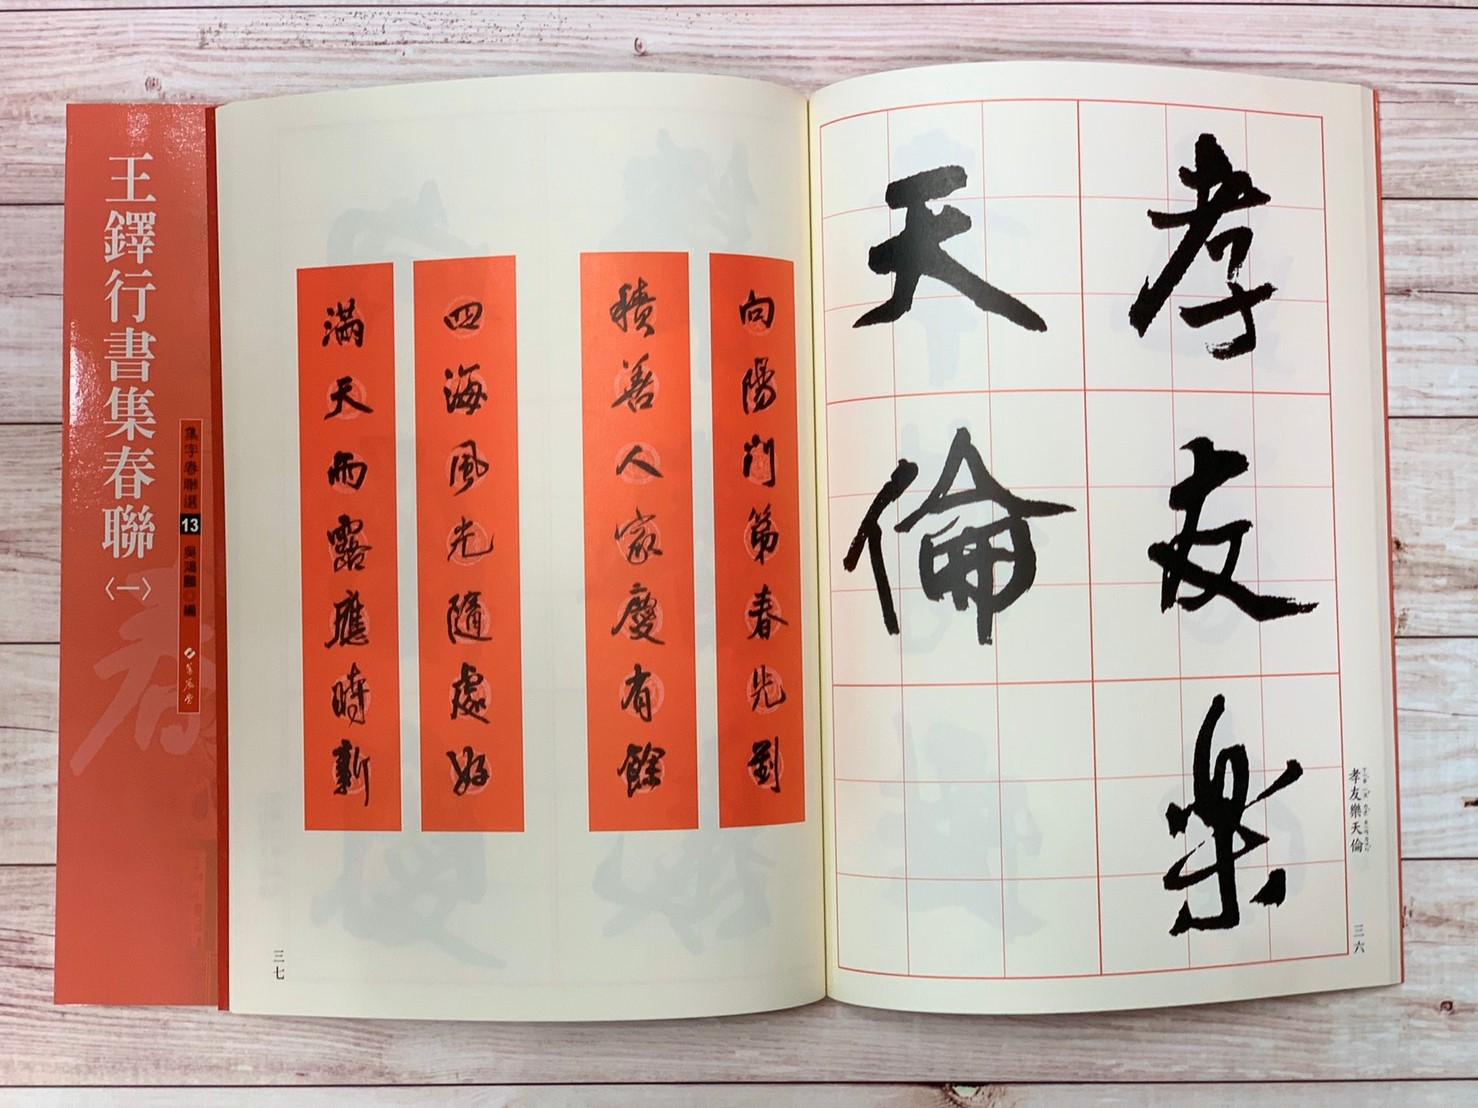 孝友樂
天倫
孝友樂天倫
三六
向陽門第春先到
積善人家慶有餘
四海風光隨處好
滿天雨露應時新
三七
王鐸行書集春聯〈一〉
集字春聯選 13 吳鴻鵬 編